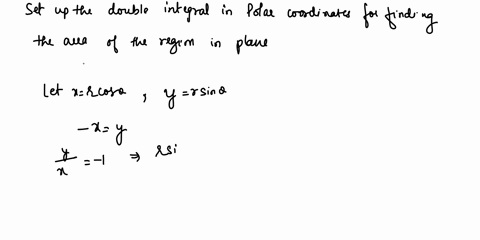 Set up the double integral in Polar coordinates for finding
the area of the region in plane
Let x=rcosθ , y=rsinθ
-x=y
y/x = -1 ⇒ rsi